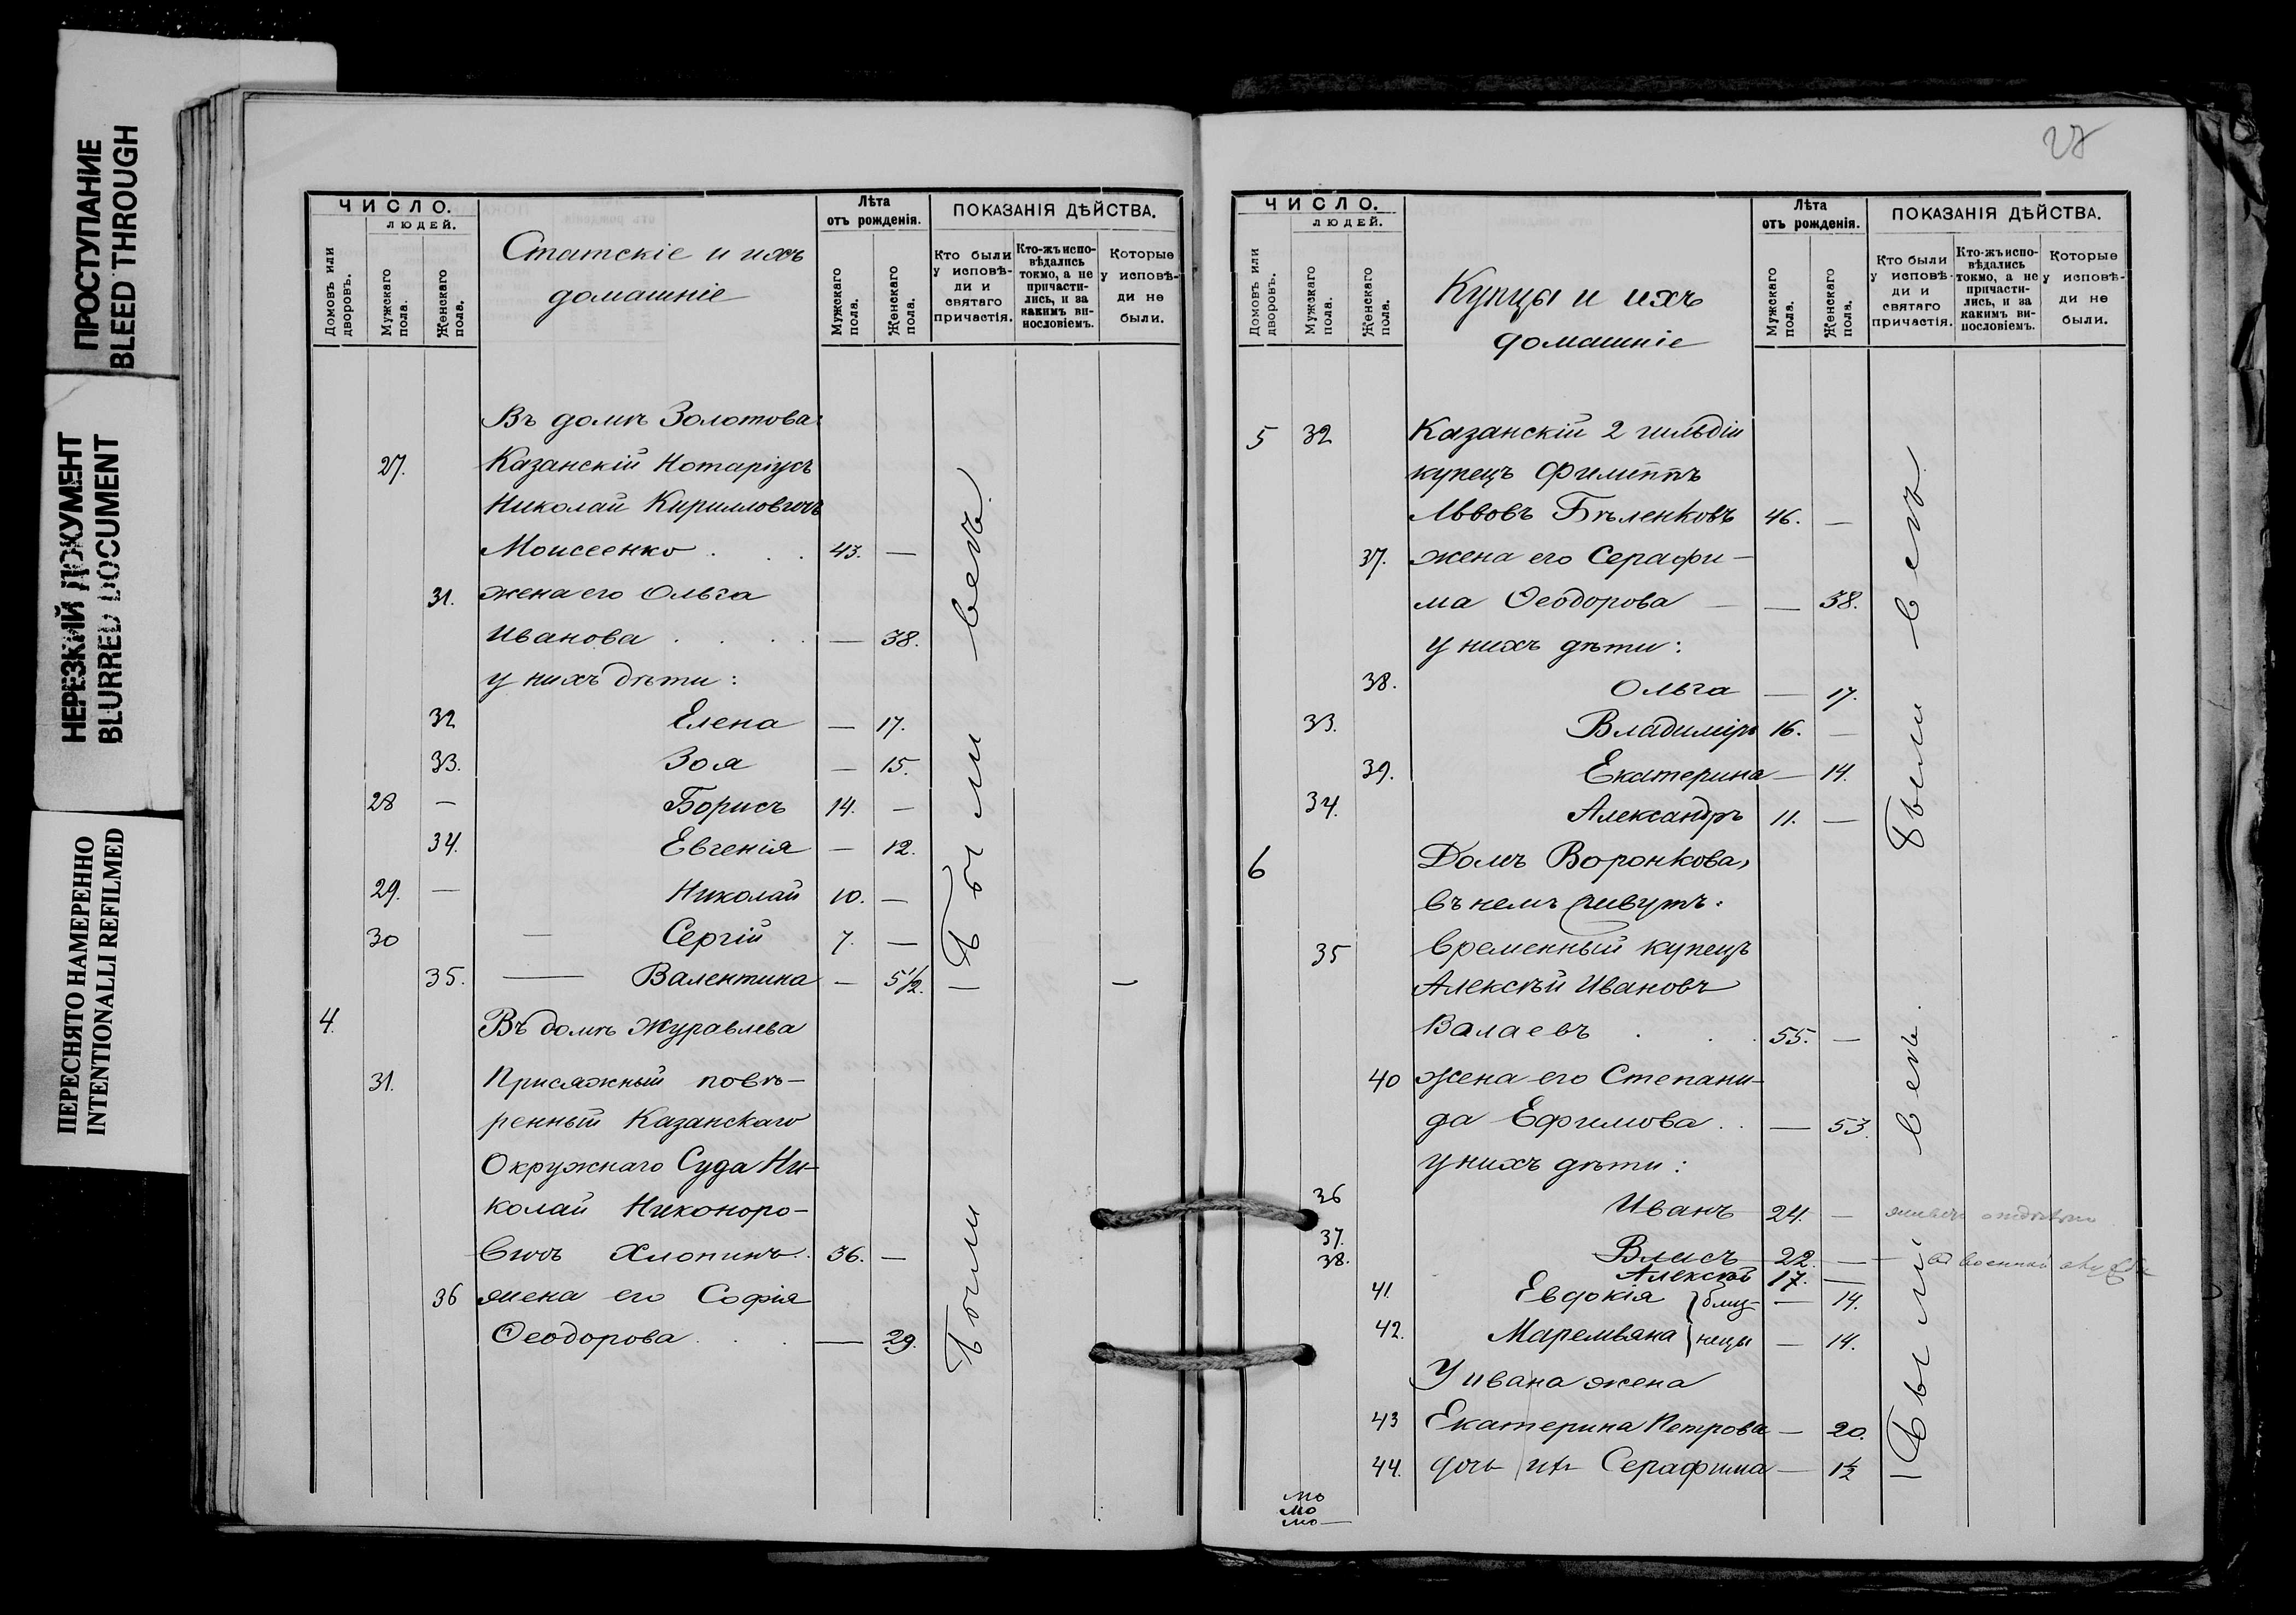 ПРОСТУПАНИЕ
BLEED THROUGH
НЕРЕЗКИЙ ДОКУМЕНТ
BLURRED DOCUMENT
ПЕРЕСНЯТО НАМЕРЕННО
INTENTIONALLI REFILMED
ЧИСЛО.
ЛЮДЕЙ.
Домовъ или дворовъ.
Мужскаго пола.
Женскаго пола.
Статскіе и ихъ
домашніе
Лѣта
отъ рожденія.
Мужскаго пола.
Женскаго пола.
ПОКАЗАНІЯ ДѢЙСТВА.
Кто были у исповѣди и святаго причастія.
Кто-жъ исповѣдались токмо, а не причастились, и за какимъ винословіемъ.
Которые у исповѣди не были.
Въ домѣ Золотова:
27. Казанскій Нотаріусъ
Николай Кирилловичъ
Моисеенко . . 43. —
31. жена его Ольга
Иванова . . . . — 38.
у нихъ дѣти:
32 Елена — 17.
33. Зоя — 15.
28 — Борисъ 14. —
34. Евгенія — 12.
29. — Николай 10. —
30 — Сергій 7. —
35. — Валентина — 5½. — —
Были всѣ
4. Въ домѣ Журавлева
31. Присяжный повѣ-
ренный Казанскаго
Окружнаго Суда Ни-
колай Никоноро-
вичъ Хлопинъ. 36. —
36 жена его Софія
Ѳеодорова . . . — 29.
Были
28
ЧИСЛО.
ЛЮДЕЙ.
Домовъ или дворовъ.
Мужскаго пола.
Женскаго пола.
Купцы и ихъ
домашніе
Лѣта
отъ рожденія.
Мужскаго пола.
Женскаго пола.
ПОКАЗАНІЯ ДѢЙСТВА.
Кто были у исповѣди и святаго причастія.
Кто-жъ исповѣдались токмо, а не причастились, и за какимъ винословіемъ.
Которые у исповѣди не были.
5 32 Казанскій 2 гильдіи
купецъ Филиппъ
Львовъ Бѣленковъ 46. —
37. жена его Серафи-
ма Ѳеодорова — — 38.
у нихъ дѣти:
38. Ольга — 17.
33. Владиміръ 16. —
39. Екатерина — 14.
34. Александръ 11. —
Были всѣ
6 Домъ Воронкова,
въ немъ живутъ:
35 временный купецъ
Алексѣй Ивановъ
Валаевъ . . . 55. —
40 жена его Степани-
да Ефимова . . — 53.
у нихъ дѣти:
36 Иванъ 24. —
37. Власъ 22. —
38. Алексѣй 17. —
41. Евдокія } близ- — 14.
42. Маремьяна } нецы — 14.
У ивана жена
43 Екатерина Петрова — 20.
44. дочь ихъ Серафима — 1½
Были всѣ.